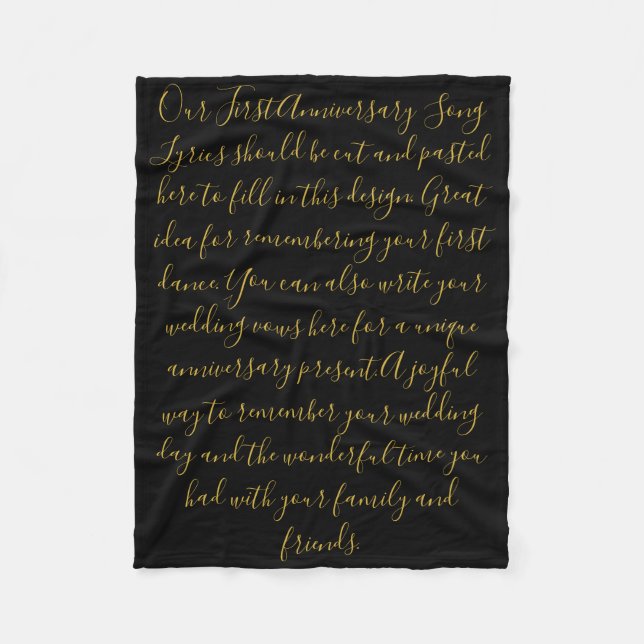 Our First Anniversary Song
Lyrics should be cut and pasted
here to fill in this design. Great
idea for remembering your first
dance. You can also write your
wedding vows here for a unique
anniversary present. A joyful
way to remember your wedding
day and the wonderful time you
had with your family and
friends.